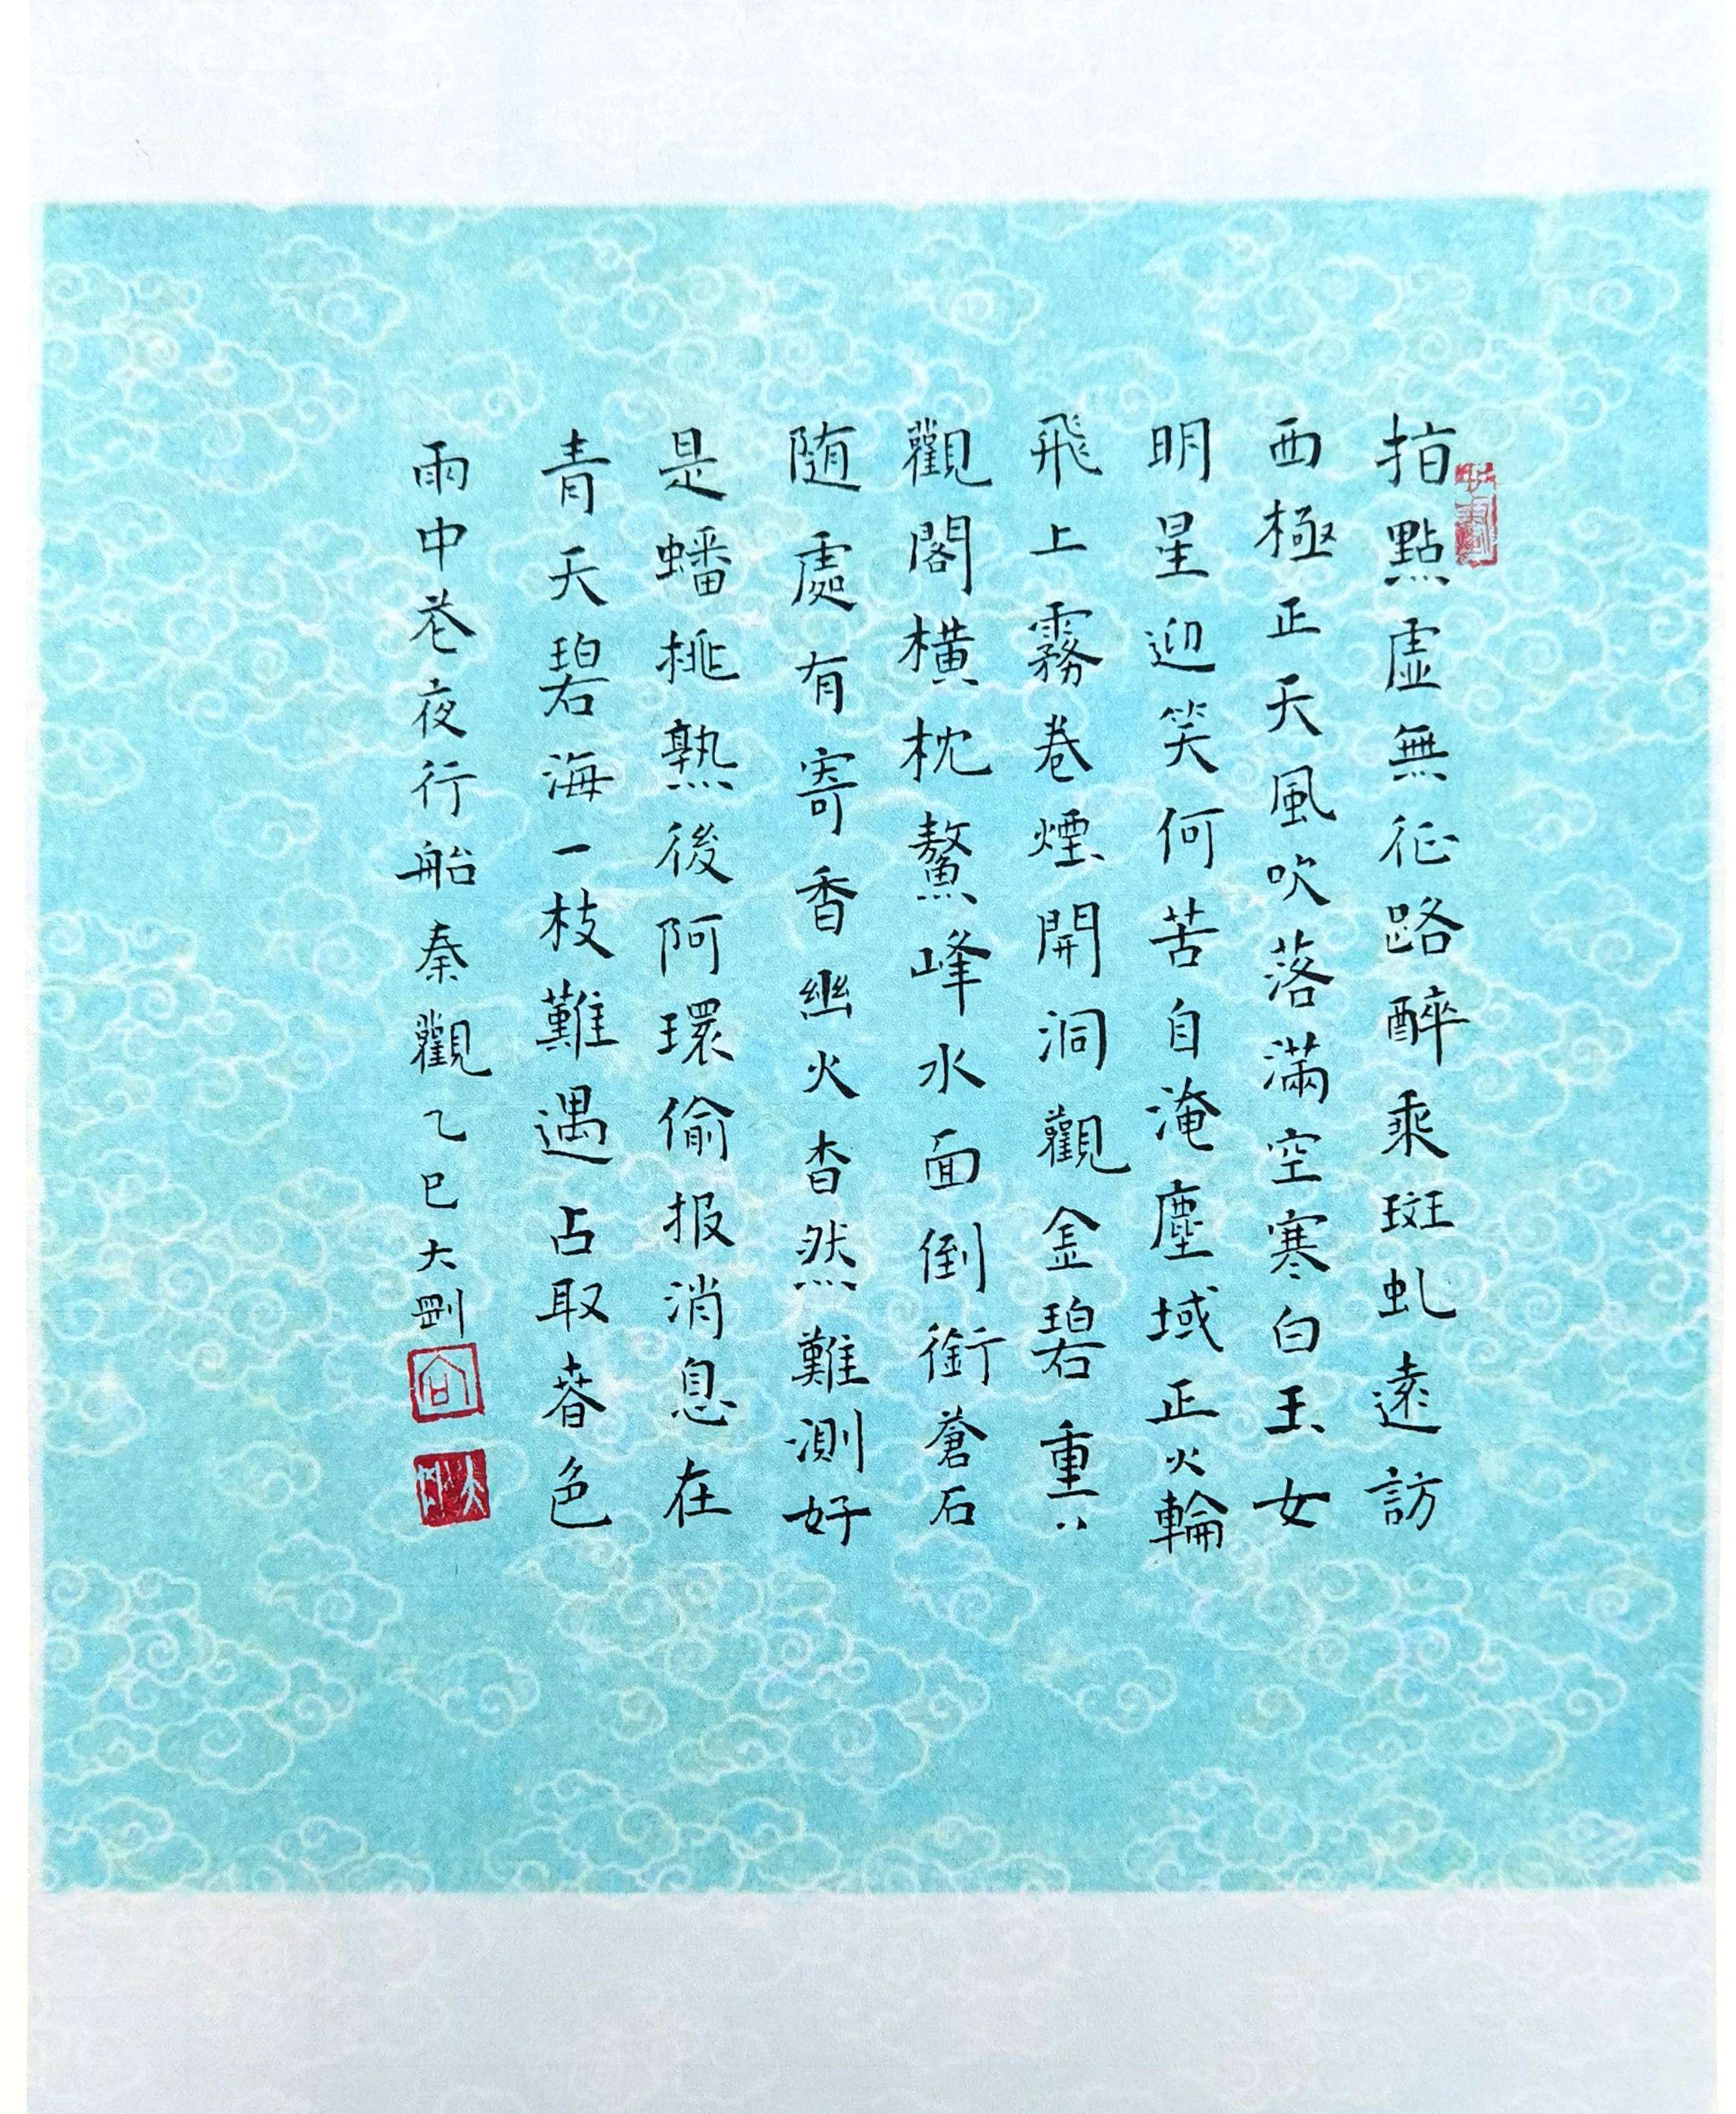 指點虛無征路醉乘斑虬遠訪
西極正天風吹落滿空寒白玉女
明星迎笑何苦自淹塵域正火輪
飛上霧卷煙開洞觀金碧重六
觀閣橫枕鰲峰水面倒銜蒼石
随處有寄香幽火杳然難測好
是蟠桃熟後阿環偷报消息在
青天碧海一枝難遇占取春色
雨中花夜行船秦觀乙巳大剛